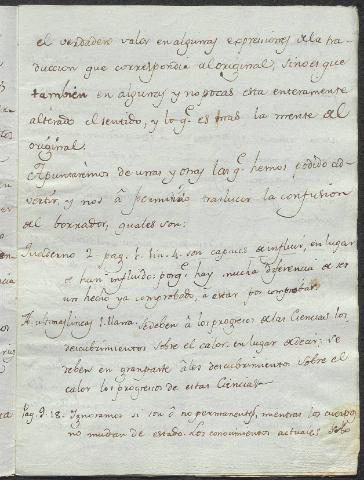 el verdadero valor en algunas expresiones de la tra-
duccion que correspondia al original, sino es que
tambien en algunas y no pocas esta enteramente
alterado el sentido, y lo q.e es mas la mente del
original.
Apuntarémos de unas y otras las q.e hemos podido ad-
vertir, y nos á permitido traslucir la confusion
del borrador, quales son:
Quaderno 2. pag. 1. lin. 4. son capaces de influir, en lugar
de han influido: porq.e hay mucha diferencia de ser
un hecho ya comprobado, á estar por comprobar.
Id. ultimas lineas 1. llana. Se deben á los progresos de las Ciencias los
descubrimientos sobre el calor, en lugar de decir: se
deben en gran parte á los descubrimientos sobre el
calor los progresos de estas Ciencias.
Pag. 9. 18. Ignoramos si son ó no permanentes, mientras los cuerpos
no mudan de estado. Los conocimientos actuales sobre